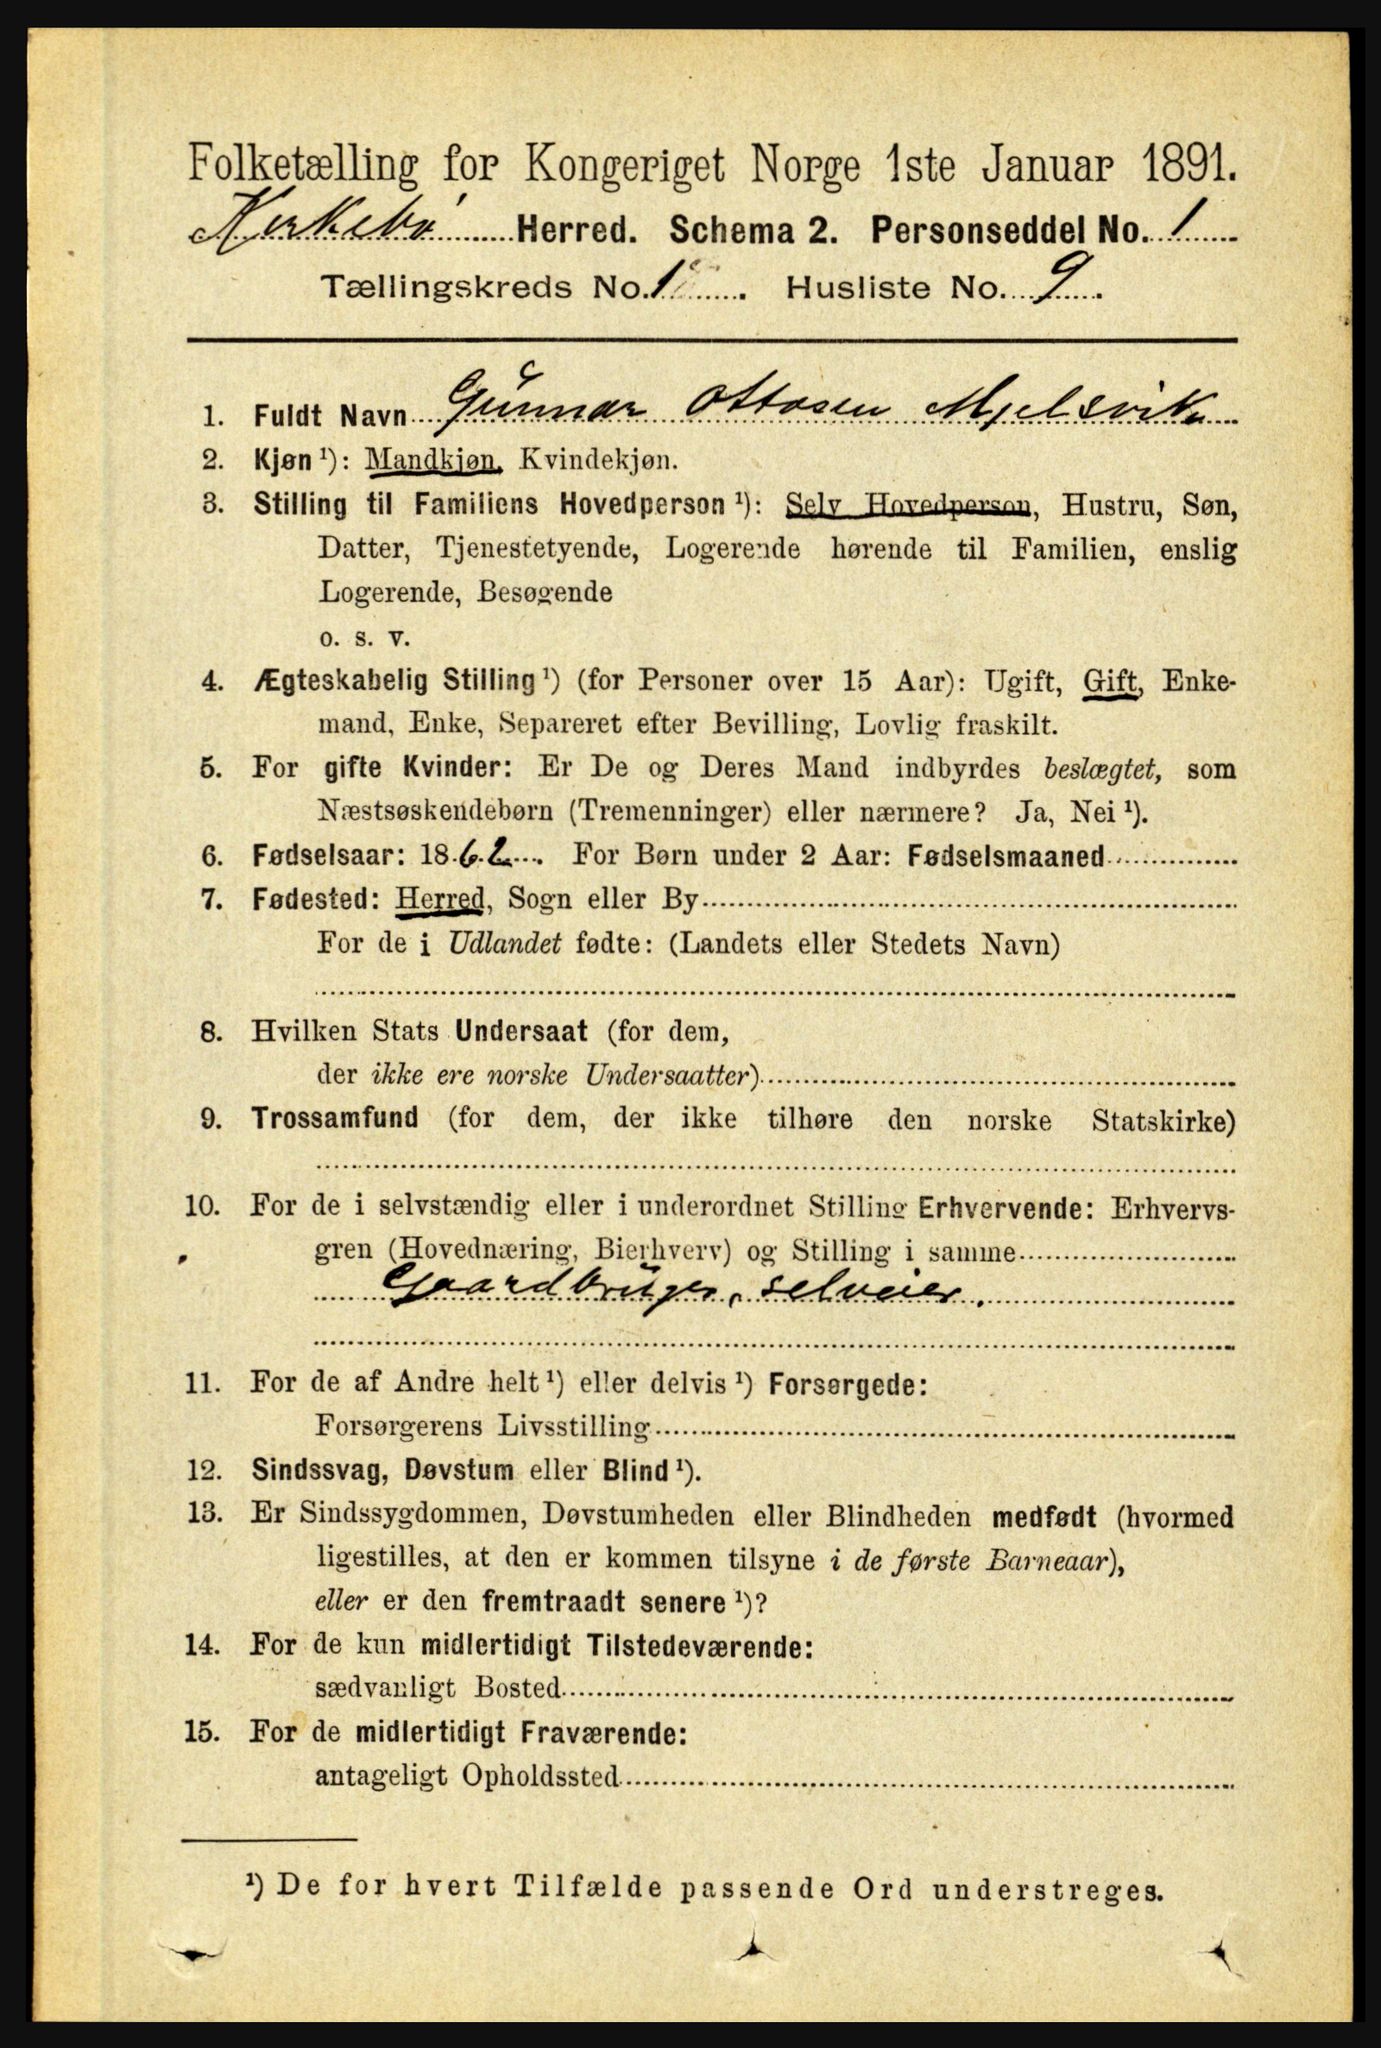 Folketælling for Kongeriget Norge 1ste Januar 1891.
Kirkebø Herred. Schema 2. Personseddel No. 1
Tællingskreds No. 1 . Husliste No. 9 .
1. Fuldt Navn Gunnar Ottosen Mjelsvik
2. Kjøn ¹): Mandkjøn, Kvindekjøn.
3. Stilling til Familiens Hovedperson ¹): Selv Hovedperson, Hustru, Søn,
Datter, Tjenestetyende, Logerende hørende til Familien, enslig
Logerende, Besøgende
o. s. v.
4. Ægteskabelig Stilling ¹) (for Personer over 15 Aar): Ugift, Gift, Enke-
mand, Enke, Separeret efter Bevilling, Lovlig fraskilt.
5. For gifte Kvinder: Er De og Deres Mand indbyrdes beslægtet, som
Næstsøskendebørn (Tremenninger) eller nærmere? Ja, Nei ¹).
6. Fødselsaar: 1862. For Børn under 2 Aar: Fødselsmaaned
7. Fødested: Herred, Sogn eller By
For de i Udlandet fødte: (Landets eller Stedets Navn)
8. Hvilken Stats Undersaat (for dem,
der ikke ere norske Undersaatter)
9. Trossamfund (for dem, der ikke tilhøre den norske Statskirke)
10. For de i selvstændig eller i underordnet Stilling Erhvervende: Erhvervs-
gren (Hovednæring, Bierhverv) og Stilling i samme
Gaardbruger, selveier.
11. For de af Andre helt ¹) eller delvis ¹) Forsørgede:
Forsørgerens Livsstilling
12. Sindssvag, Døvstum eller Blind ¹).
13. Er Sindssygdommen, Døvstumheden eller Blindheden medfødt (hvormed
ligestilles, at den er kommen tilsyne i de første Barneaar),
eller er den fremtraadt senere ¹)?
14. For de kun midlertidigt Tilstedeværende:
sædvanligt Bosted
15. For de midlertidigt Fraværende:
antageligt Opholdssted
¹) De for hvert Tilfælde passende Ord understreges.